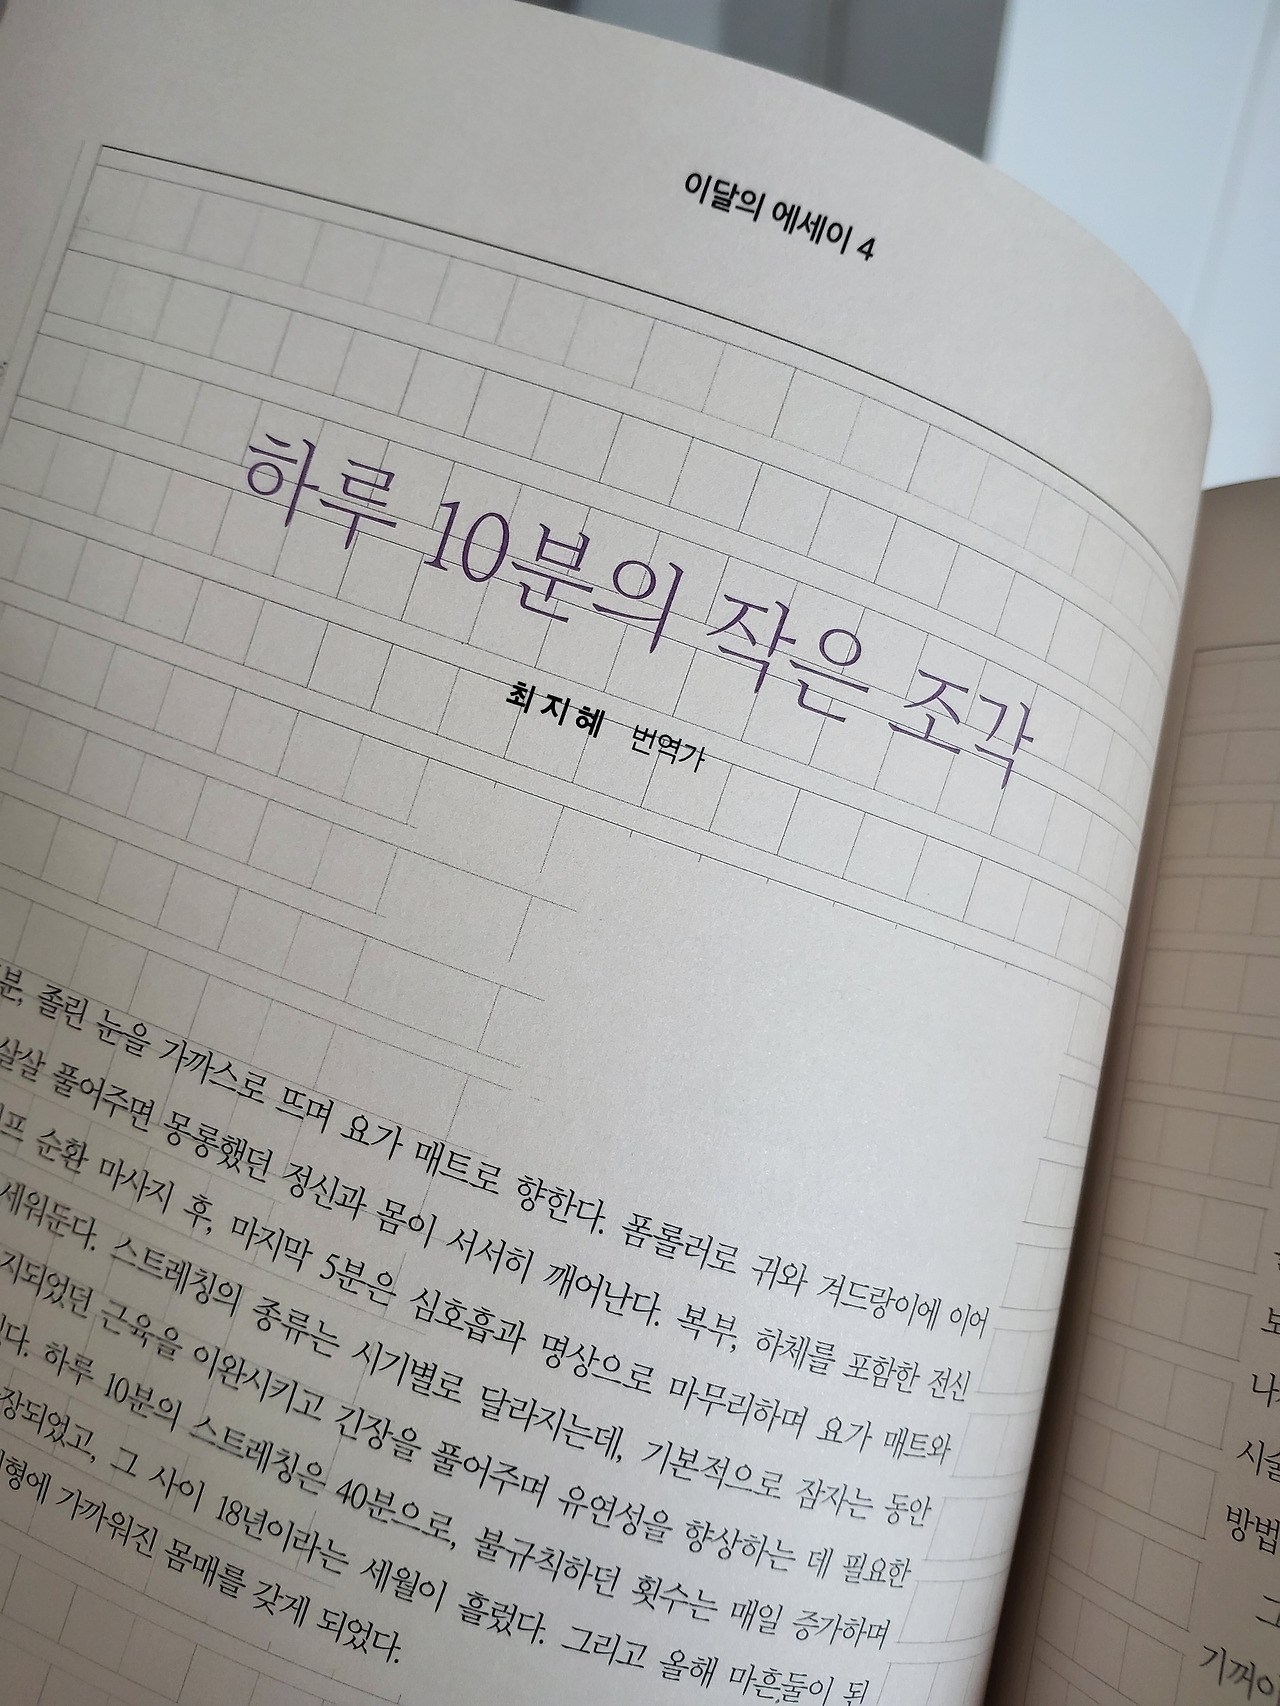 이달의 에세이 4
하루 10분의 작은 조각
최지혜 번역가
분, 졸린 눈을 가까스로 뜨며 요가 매트로 향한다. 폼롤러로 귀와 겨드랑이에 이어
살살 풀어주면 몽롱했던 정신과 몸이 서서히 깨어난다. 복부, 하체를 포함한 전신
프 순환 마사지 후, 마지막 5분은 심호흡과 명상으로 마무리하며 요가 매트와
세워둔다. 스트레칭의 종류는 시기별로 달라지는데, 기본적으로 잠자는 동안
지되었던 근육을 이완시키고 긴장을 풀어주며 유연성을 향상하는 데 필요한
다. 하루 10분의 스트레칭은 40분으로, 불규칙하던 횟수는 매일 증가하며
장되었고, 그 사이 18년이라는 세월이 흘렀다. 그리고 올해 마흔둘이 된
형에 가까워진 몸매를 갖게 되었다.
나
시술
방법
그
기꺼이